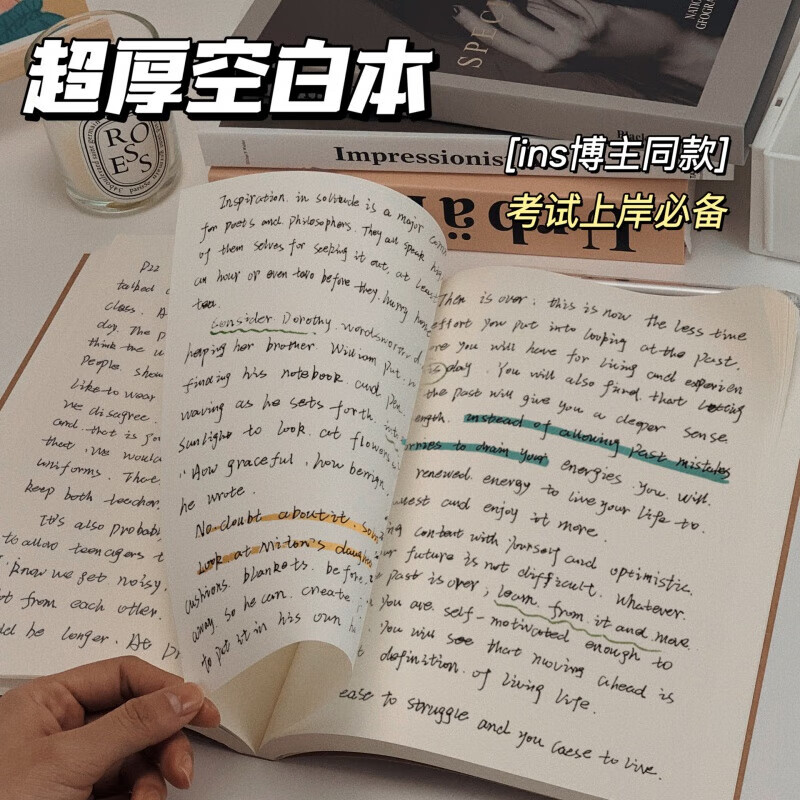 超厚空白本
[ins博主同款]
考试上岸必备
SPEC
NATIO
GEOGRA
Black
Impressionis
Urbä
ROSES
paris
P22
talked
class. A
day. The p
think the u
people. shou
like to wear
we disagree.
and that is
that. We would
uniforms. That
keep both teacher
It's also probabl
to allow teenagers t
know we get noisy
ot from each other.
be longer. At
Inspiration. in solitude is a major
for poets and philosophers. They all speak
of them selves for seeking it out, at least
an hour or even two before they. hurry home
tea.
Consider Dorothy. wordsworth
helping her brother. William put.
finding his notebook. and pen
waving as he sets forth. into
sunlight to look. at flowers
"How graceful, how benign.
he wrote.
No doubt about it. soli
Look at Milton's daughte
cushions. blankets. before.
away. so he can. create
to put it in his own
Then is over; this is now the less time
effort you put into looping at the past.
re you will have for living and experien
is day. You will also find. that letting
the past will give you a deeper sense
ength. instead of allowing past mistakes
rries to drain your energies. you. will.
renewed. energy to live your life to.
uest and enjoy it more.
ng content with yourself and optimistic.
ur future is not difficult. Whatever.
past is over; learn from it and move
You are self-motivated enough to
You will see that moving ahead is
definition. of living life.
ease to struggle and you caese to live.